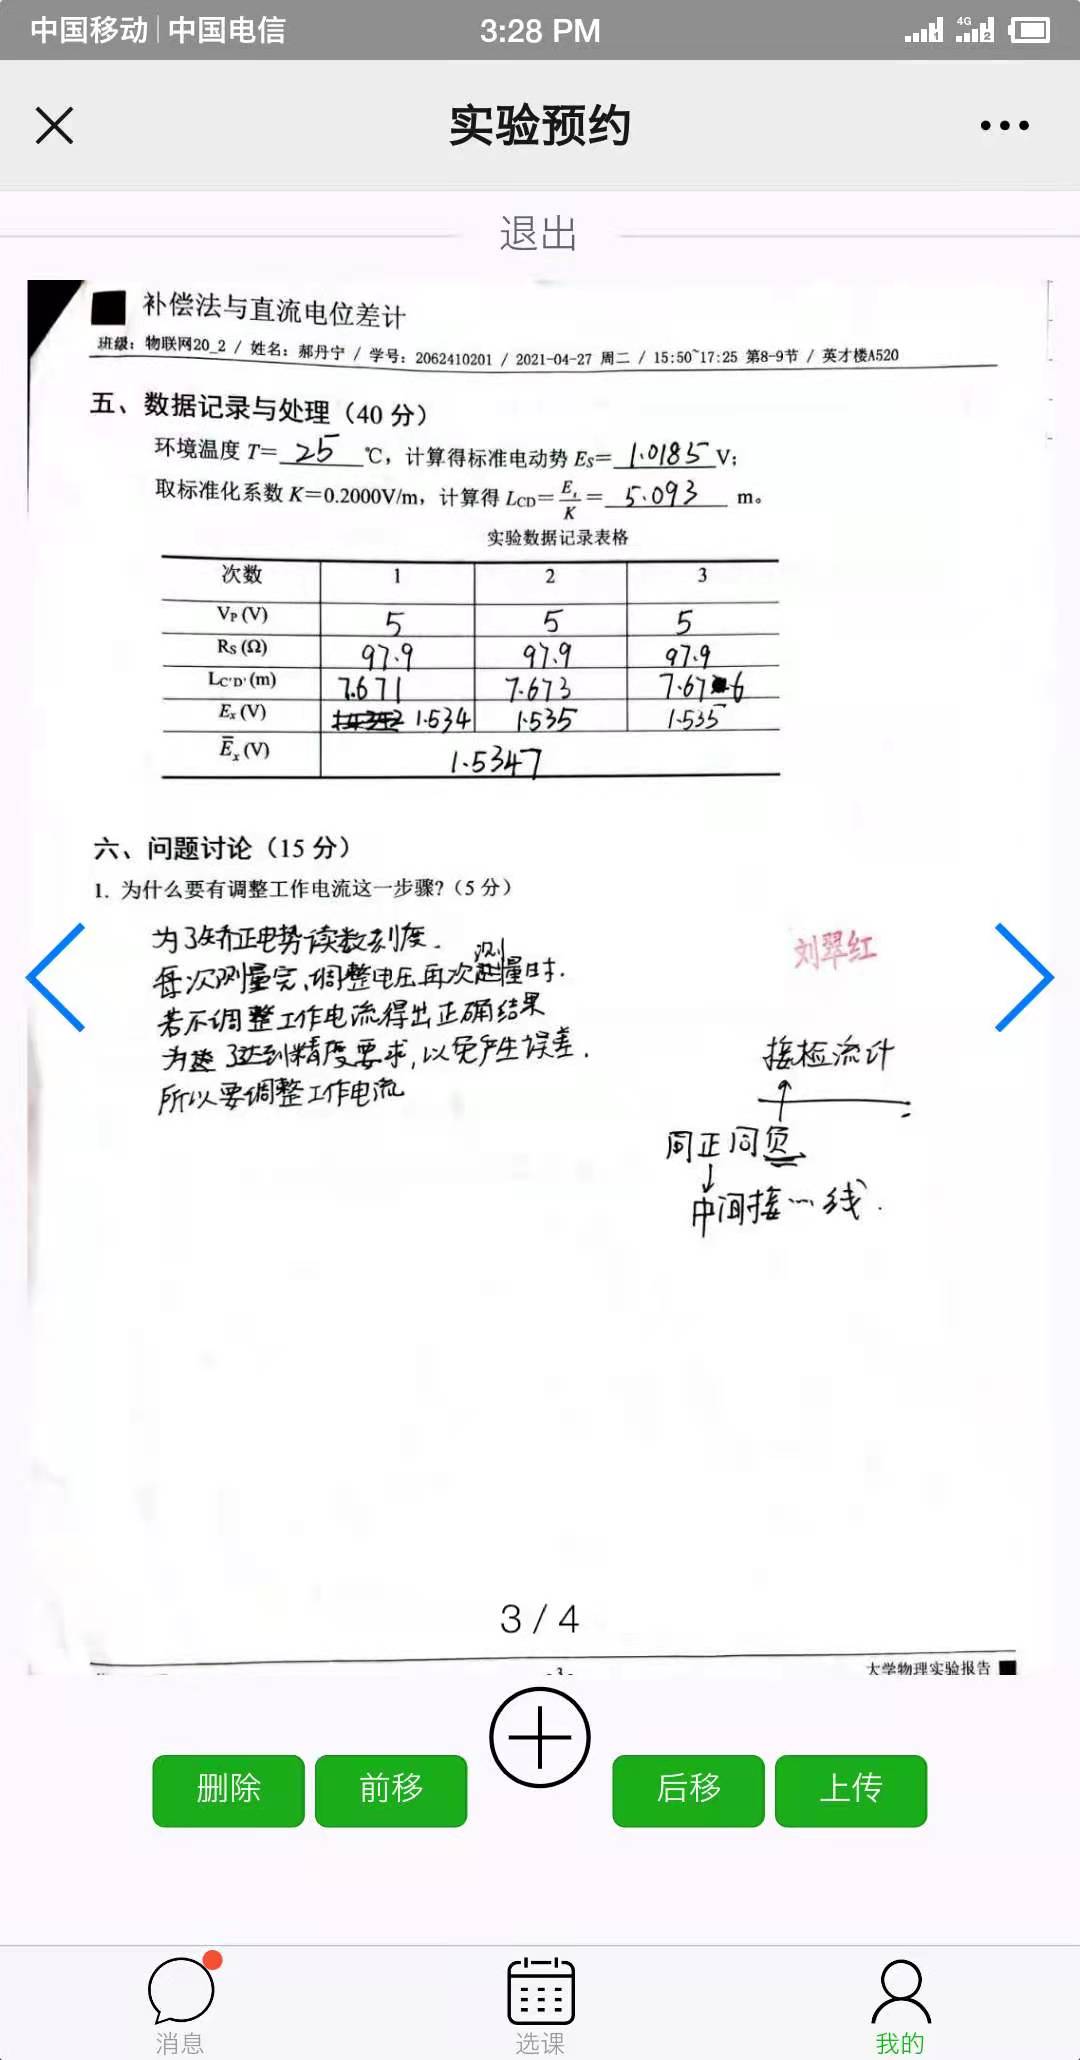 中国移动 中国电信 3:28 PM 4G
实验预约
退出
补偿法与直流电位差计
班级：物联网20_2 / 姓名：郝丹宁 / 学号：2062410201 / 2021-04-27 周二 / 15:50~17:25 第8-9节 / 英才楼A520
五、数据记录与处理（40 分）
环境温度 T= 25 ℃，计算得标准电动势 Es= 1.0185 V；
取标准化系数 K=0.2000V/m，计算得 LCD=Es/K= 5.093 m。
实验数据记录表格
次数 1 2 3
VP (V) 5 5 5
RS (Ω) 97.9 97.9 97.9
LC'D' (m) 7.671 7.673 7.676
Ex (V) 1.534 1.535 1.535
E̅x (V) 1.5347
六、问题讨论（15 分）
1. 为什么要有调整工作电流这一步骤?（5 分）
为了矫正电势读数刻度.
每次测量完,调整电压再次测量时.
若不调整工作电流得出正确结果
为了达到精度要求,以免产生误差.
所以要调整工作电流
刘翠红
接检流计
同正同负
中间接一线.
3 / 4
-3-
大学物理实验报告
删除 前移 后移 上传
消息 选课 我的